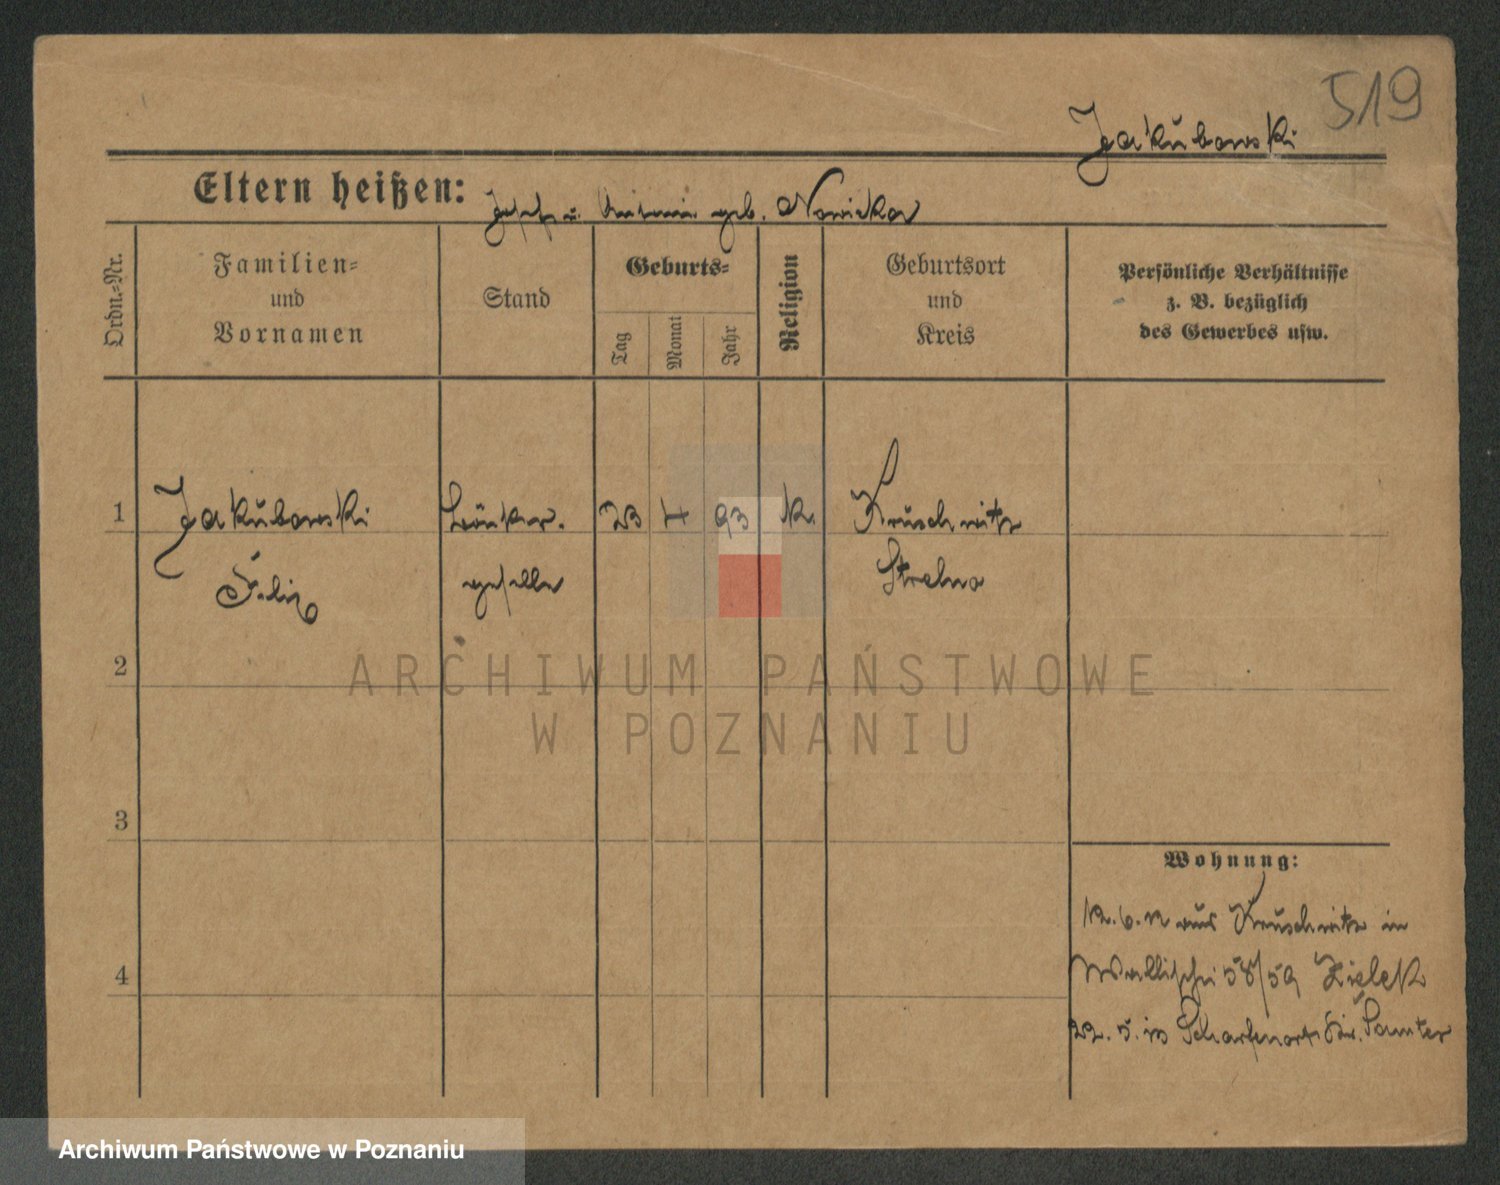 519
Jakubowski
Eltern heißen: Josef u. Antonie geb. Nowicka
Ordn.-Nr.
Familien-
und
Vornamen
Stand
Geburts-
Tag
Monat
Jahr
Religion
Geburtsort
und
Kreis
Persönliche Verhältnisse
z. B. bezüglich
des Gewerbes usw.
1 Jakubowski 23 4 93 k. Kruschwitz
Felix geselle Strelno
2
ARCHIWUM PAŃSTWOWE
W POZNANIU
3
Wohnung:
12. 6. 12 aus Kruschwitz in
4 Wallischei 58/59 Zielek
22. 5. in Scharfenort Kr. Samter
Archiwum Państwowe w Poznaniu